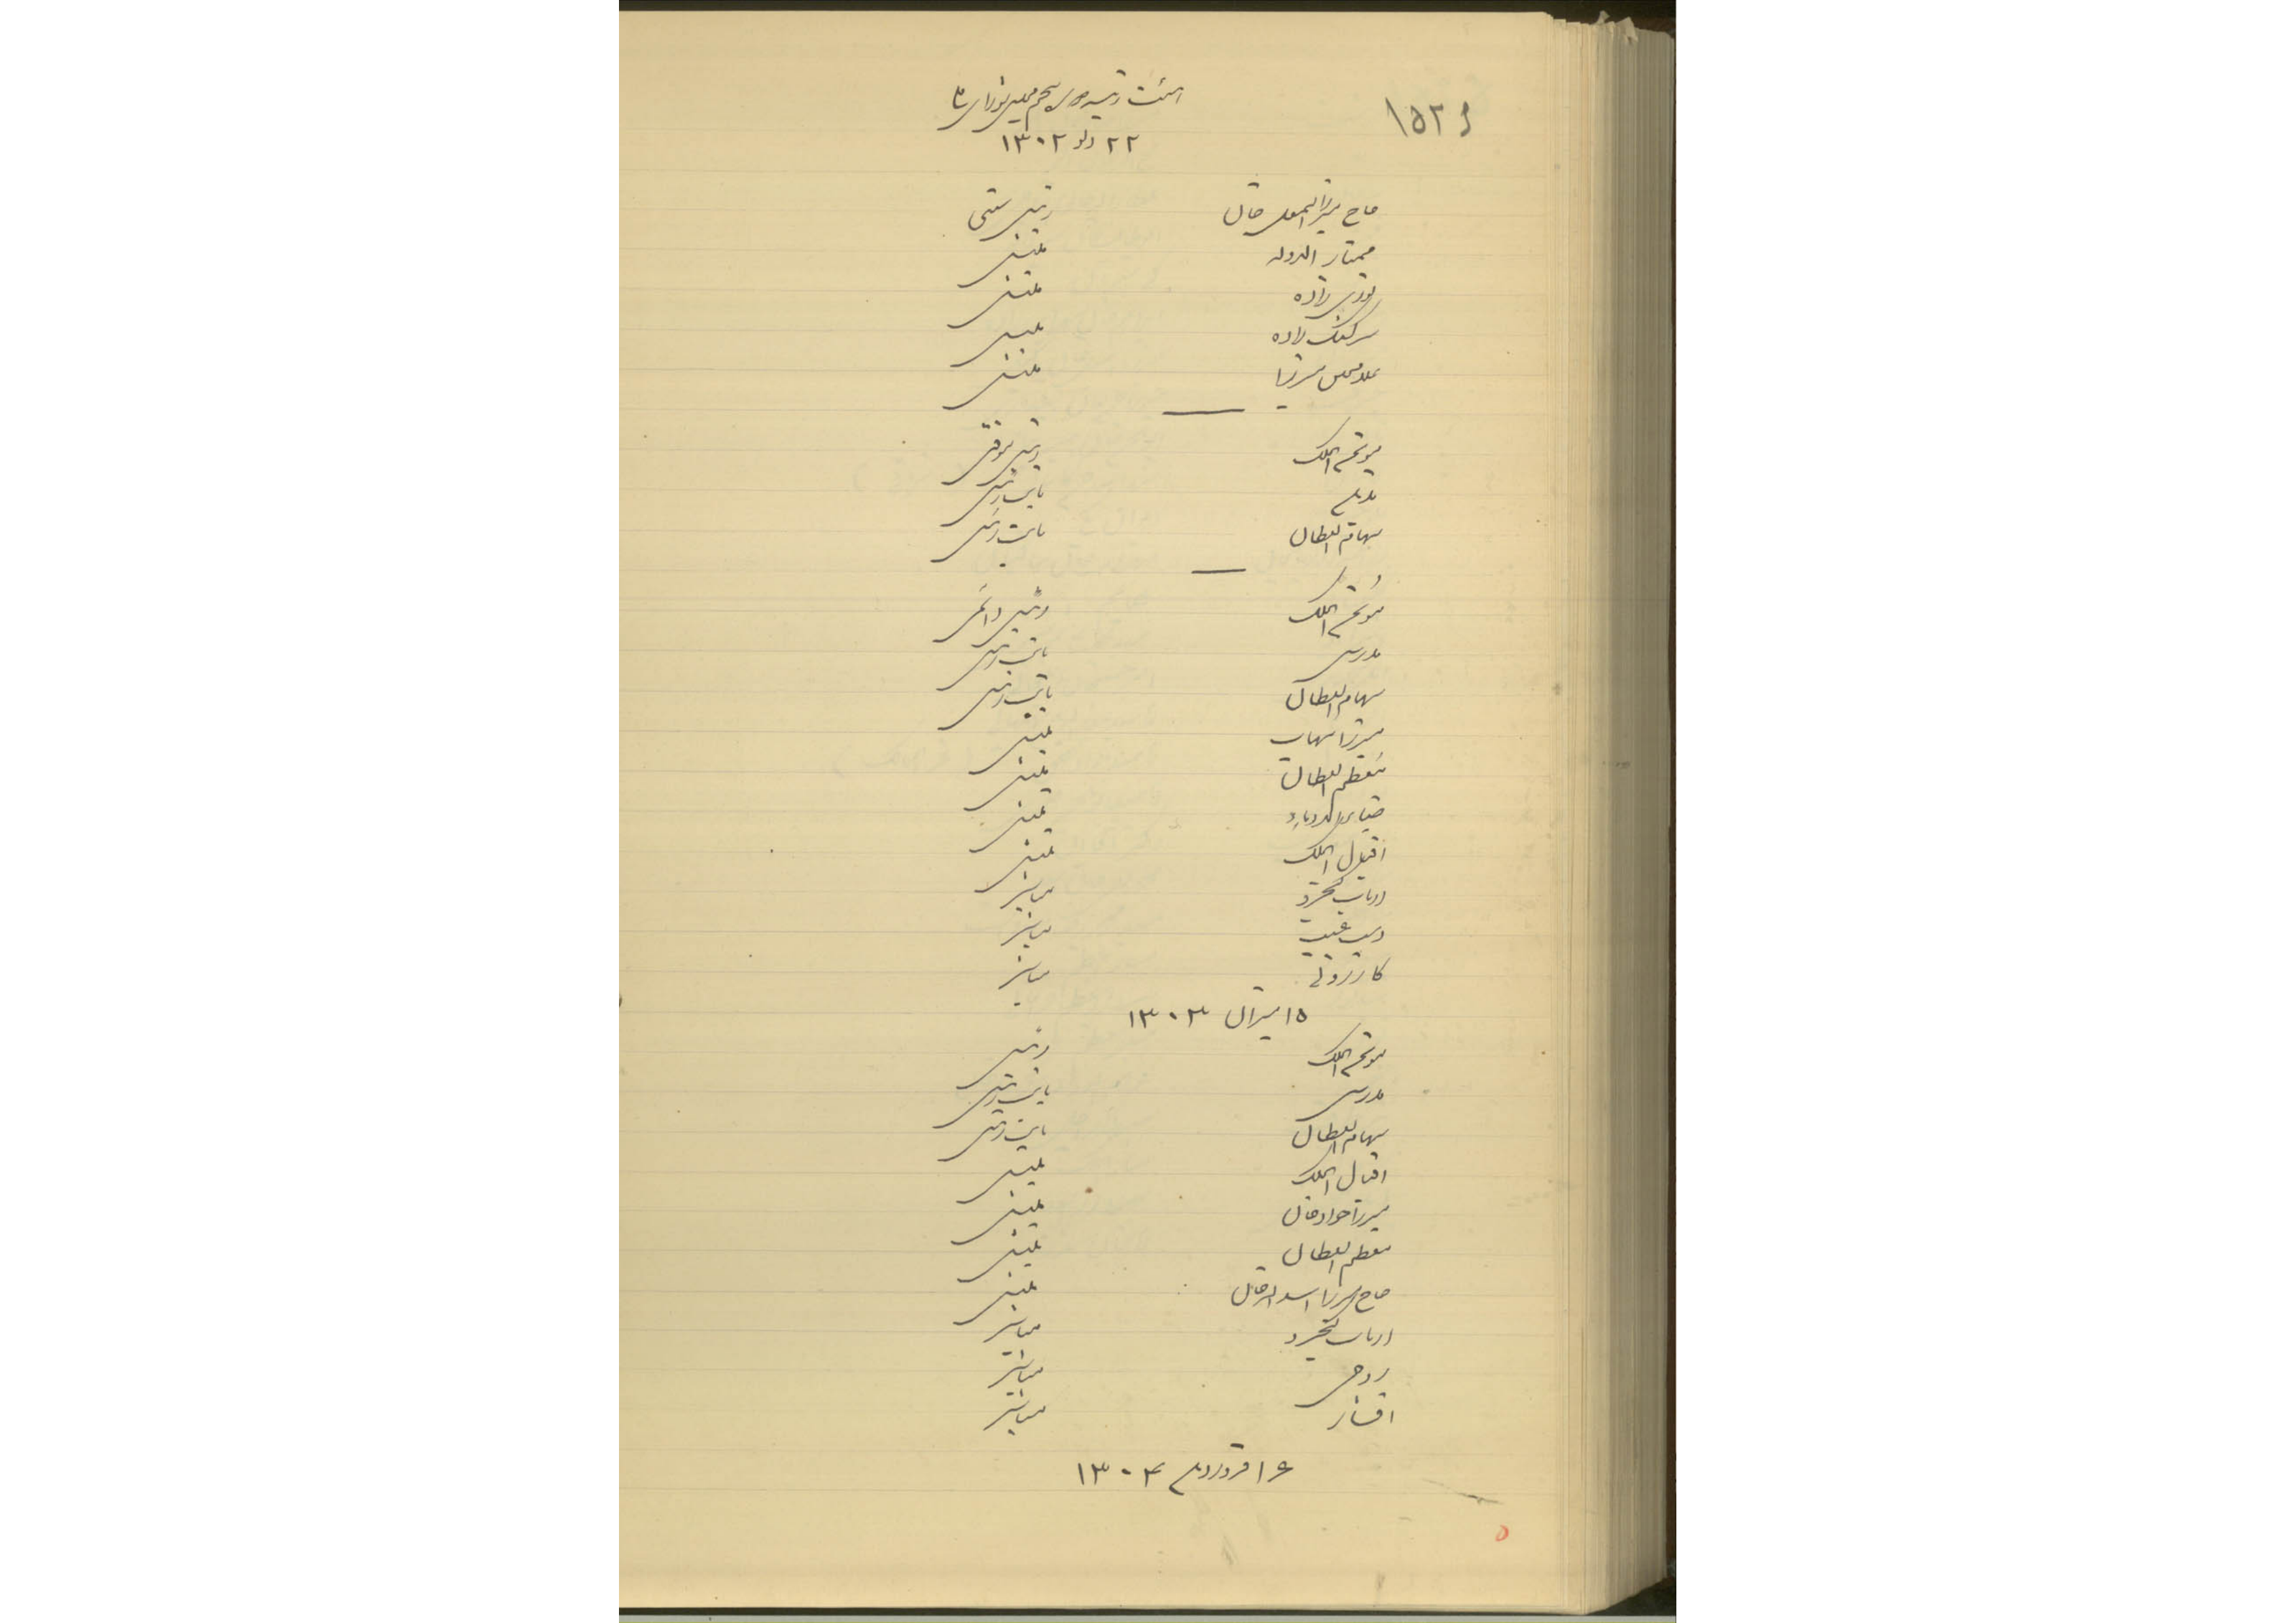 ۱۵۲۶
هیئت رئیسه دوره پنجم مجلس شورای ملی
۲۲ دلو ۱۳۰۲
حاج میرزا اسمعیل خان رئیس سنی
ممتاز الدوله منشی
نوری زاده منشی
سرکشیک زاده منشی
محمد میرزا منشی
موتمن الملک رئیس موقتی
تدین نایب رئیس
سهام السلطان نایب رئیس
موتمن الملک رئیس دائمی
مدرس نایب رئیس
سهام السلطان نایب رئیس
میرزا شهاب منشی
معظم السلطان منشی
ضیاء منشی
اقبال الملک منشی
ارباب کیخسرو مباشر
مباشر
کازرونی مباشر
۱۵ میزان ۱۳۰۳
موتمن الملک رئیس
مدرس نایب رئیس
سهام السلطان نایب رئیس
اقبال الملک منشی
میرزا جواد خان منشی
معظم السلطان منشی
حاج میرزا اسد الله خان منشی
ارباب کیخسرو مباشر
روحی مباشر
افشار مباشر
۱۶ فروردین ۱۳۰۴
۵